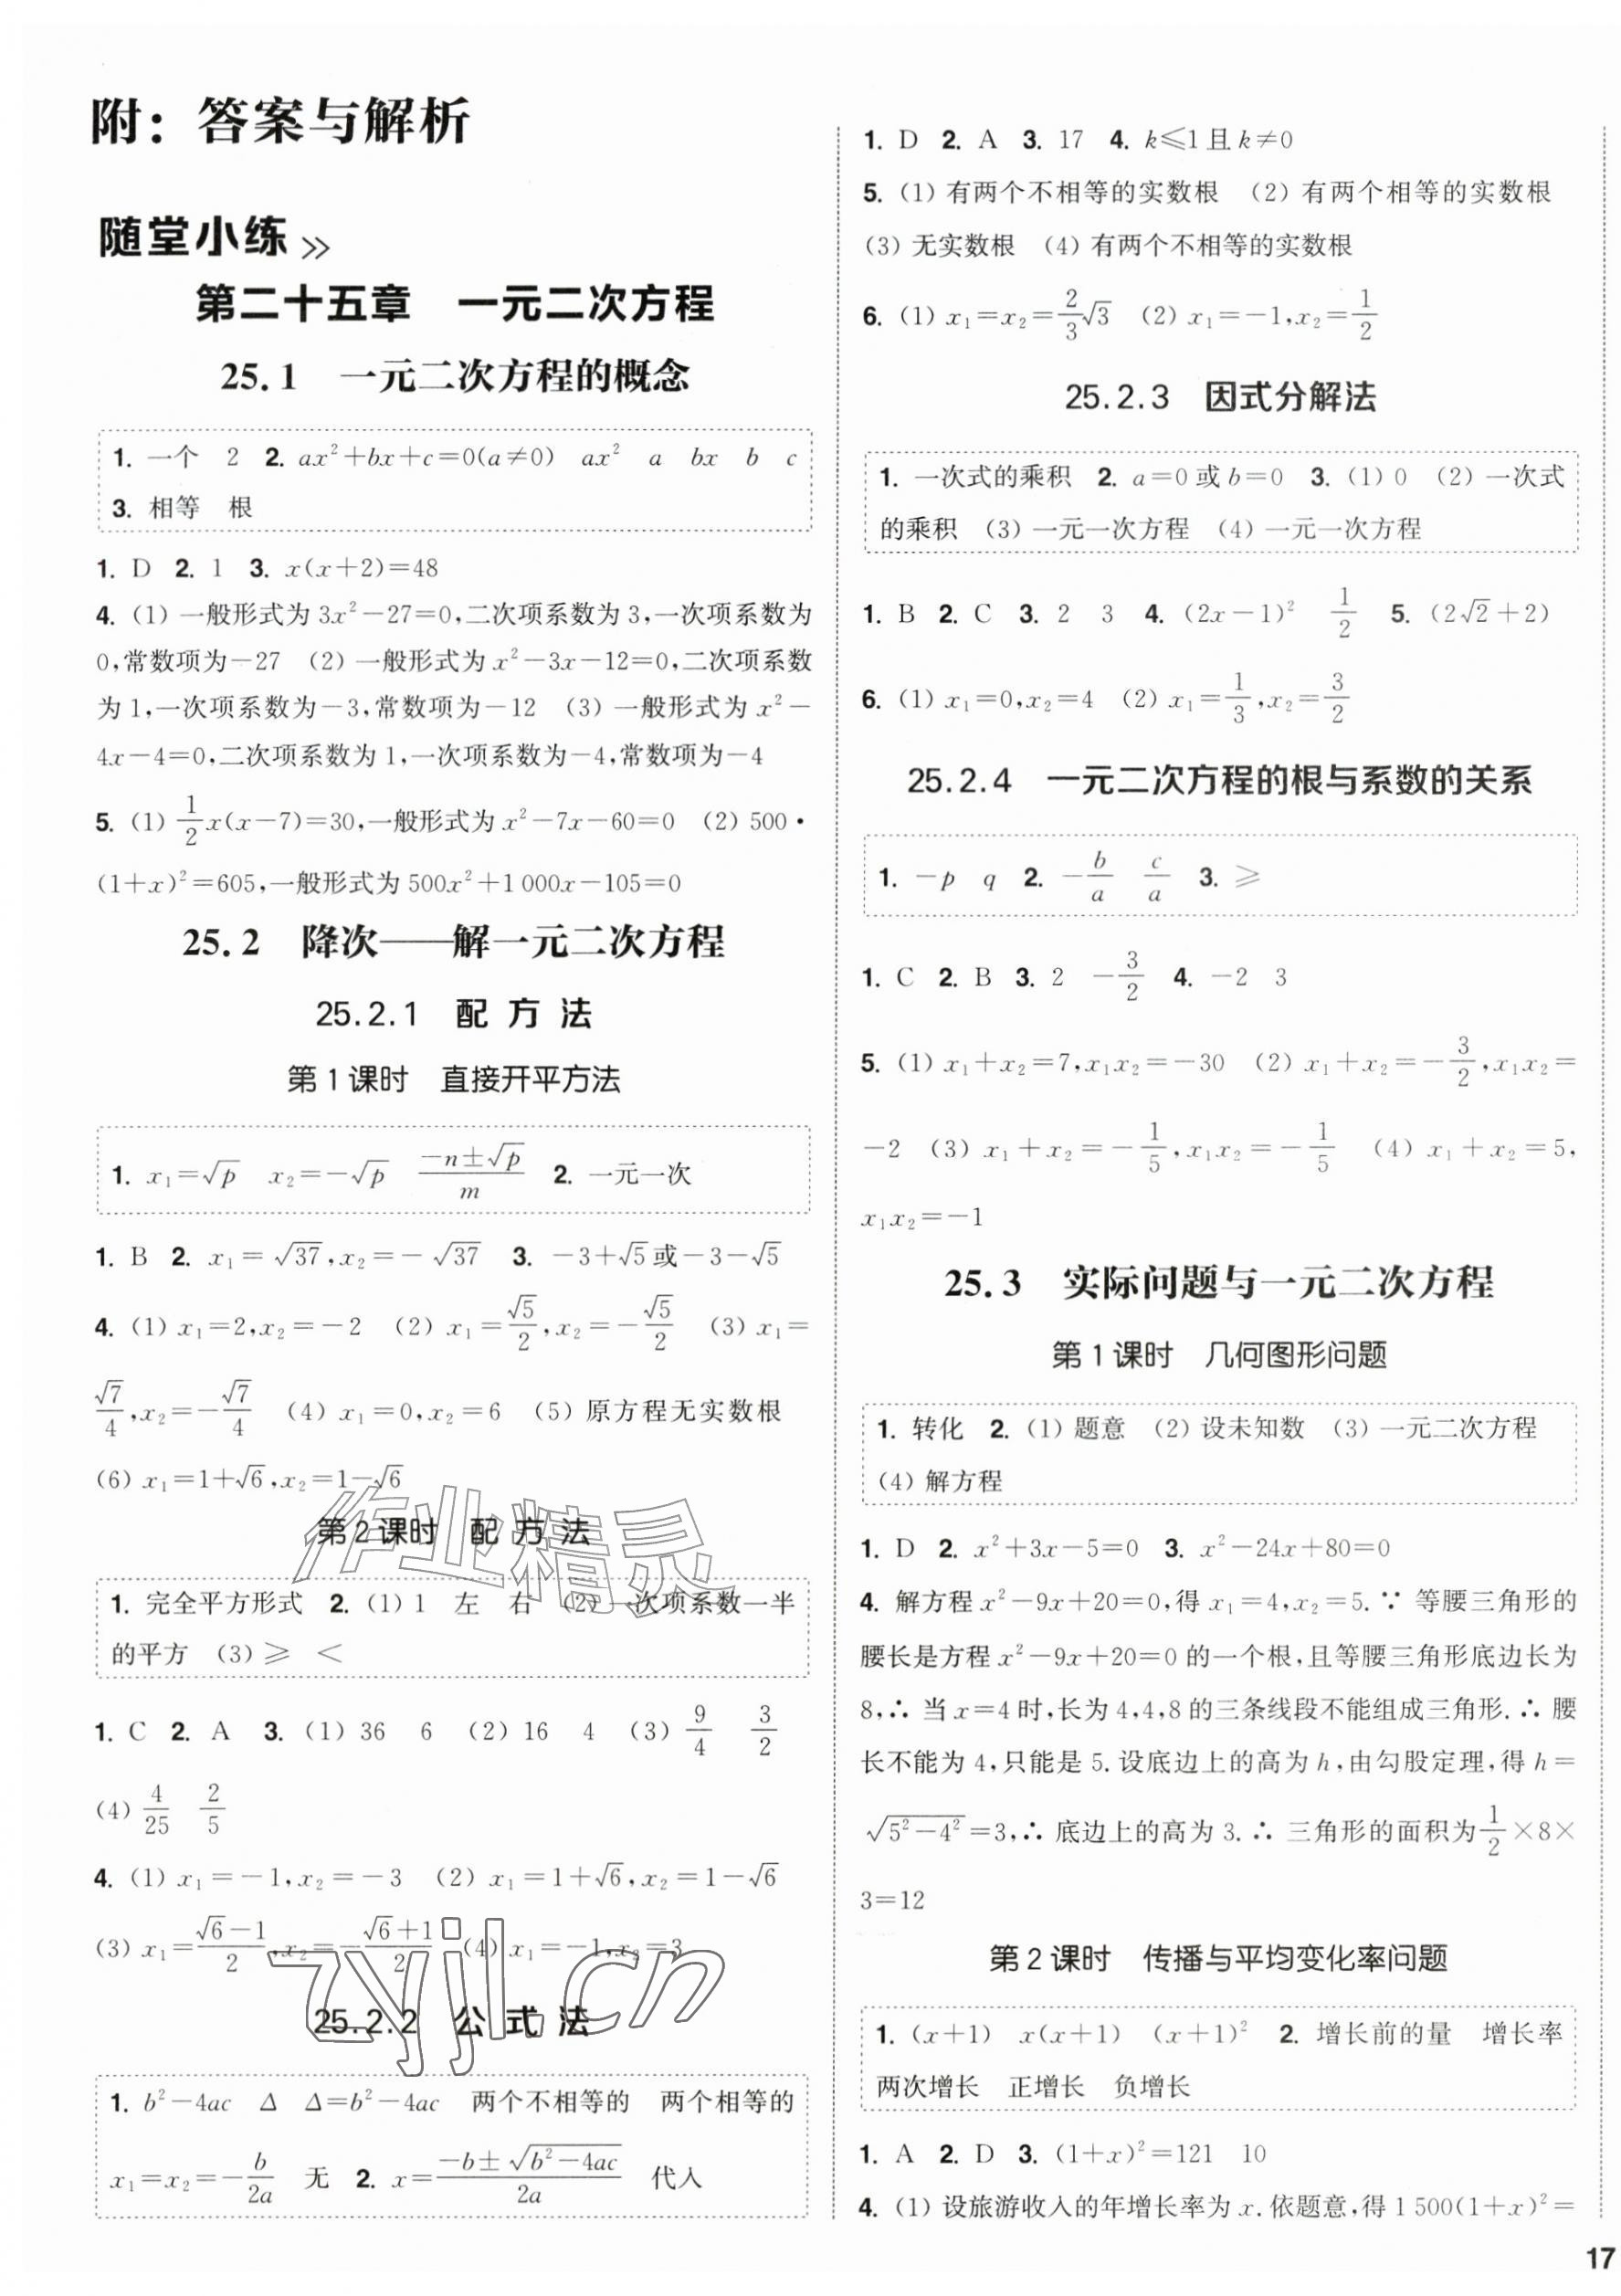 附：答案与解析
随堂小练 >>
第二十五章　一元二次方程
25.1　一元二次方程的概念
1. 一个　2　2. ax²+bx+c=0(a≠0)　ax²　a　bx　b　c
3. 相等　根
1. D　2. 1　3. x(x+2)=48
4. (1) 一般形式为 3x²-27=0,二次项系数为 3,一次项系数为
0,常数项为-27　(2) 一般形式为 x²-3x-12=0,二次项系数
为 1,一次项系数为-3,常数项为-12　(3) 一般形式为 x²-
4x-4=0,二次项系数为 1,一次项系数为-4,常数项为-4
5. (1) 1/2 x(x-7)=30,一般形式为 x²-7x-60=0　(2) 500·
(1+x)²=605,一般形式为 500x²+1 000x-105=0
25.2　降次——解一元二次方程
25.2.1　配 方 法
第 1 课时　直接开平方法
1. x₁=√p　x₂=-√p　(-n±√p)/m　2. 一元一次
1. B　2. x₁=√37,x₂=-√37　3. -3+√5或-3-√5
4. (1) x₁=2,x₂=-2　(2) x₁=√5/2,x₂=-√5/2　(3) x₁=
√7/4,x₂=-√7/4　(4) x₁=0,x₂=6　(5) 原方程无实数根
(6) x₁=1+√6,x₂=1-√6
第 2 课时　配 方 法
1. 完全平方形式　2. (1) 1　左　右　(2) 一次项系数一半
的平方　(3) ≥　<
1. C　2. A　3. (1) 36　6　(2) 16　4　(3) 9/4　3/2
(4) 4/25　2/5
4. (1) x₁=-1,x₂=-3　(2) x₁=1+√6,x₂=1-√6
(3) x₁=(√6-1)/2,x₂=-(√6+1)/2　(4) x₁=-1,x₂=3
25.2.2　公 式 法
1. b²-4ac　Δ　Δ=b²-4ac　两个不相等的　两个相等的
x₁=x₂=-b/2a　无　2. x=(-b±√(b²-4ac))/2a　代入
作业精灵
zyjl.cn
1. D　2. A　3. 17　4. k≤1 且 k≠0
5. (1) 有两个不相等的实数根　(2) 有两个相等的实数根
(3) 无实数根　(4) 有两个不相等的实数根
6. (1) x₁=x₂=2/3 √3　(2) x₁=-1,x₂=1/2
25.2.3　因式分解法
1. 一次式的乘积　2. a=0 或 b=0　3. (1) 0　(2) 一次式
的乘积　(3) 一元一次方程　(4) 一元一次方程
1. B　2. C　3. 2　3　4. (2x-1)²　1/2　5. (2√2+2)
6. (1) x₁=0,x₂=4　(2) x₁=1/3,x₂=3/2
25.2.4　一元二次方程的根与系数的关系
1. -p　q　2. -b/a　c/a　3. ≥
1. C　2. B　3. 2　-3/2　4. -2　3
5. (1) x₁+x₂=7,x₁x₂=-30　(2) x₁+x₂=-3/2,x₁x₂=
-2　(3) x₁+x₂=-1/5,x₁x₂=-1/5　(4) x₁+x₂=5,
x₁x₂=-1
25.3　实际问题与一元二次方程
第 1 课时　几何图形问题
1. 转化　2. (1) 题意　(2) 设未知数　(3) 一元二次方程
(4) 解方程
1. D　2. x²+3x-5=0　3. x²-24x+80=0
4. 解方程 x²-9x+20=0,得 x₁=4,x₂=5. ∵ 等腰三角形的
腰长是方程 x²-9x+20=0 的一个根,且等腰三角形底边长为
8,∴ 当 x=4 时,长为 4,4,8 的三条线段不能组成三角形. ∴ 腰
长不能为 4,只能是 5. 设底边上的高为 h,由勾股定理,得 h=
√(5²-4²)=3,∴ 底边上的高为 3. ∴ 三角形的面积为1/2×8×
3=12
第 2 课时　传播与平均变化率问题
1. (x+1)　x(x+1)　(x+1)²　2. 增长前的量　增长率
两次增长　正增长　负增长
1. A　2. D　3. (1+x)²=121　10
4. (1) 设旅游收入的年增长率为 x. 依题意,得 1 500(1+x)²=
17